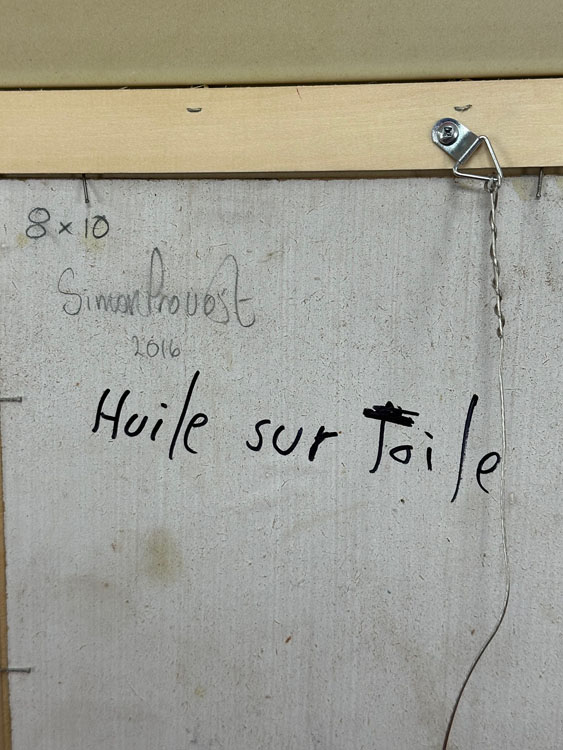 8 x 10
Simon Provost
2016
Huile sur Toile